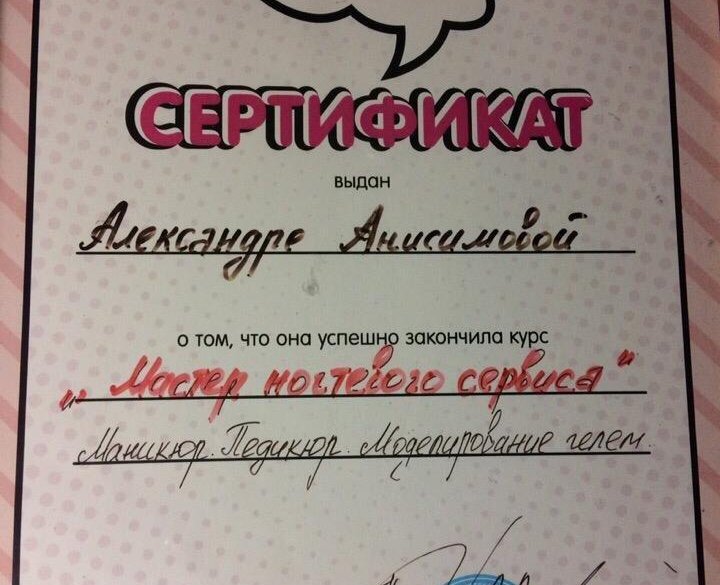 СЕРТИФИКАТ
выдан
Александре Анисимовой
о том, что она успешно закончила курс
„Мастер ногтевого сервиса"
Маникюр. Педикюр. Моделирование гелем.